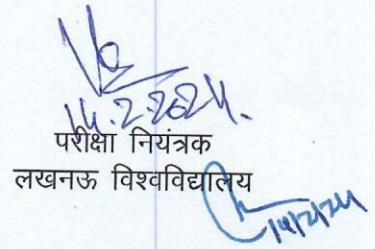 14.2.2024.
परीक्षा नियंत्रक
लखनऊ विश्वविद्यालय
14/2/24